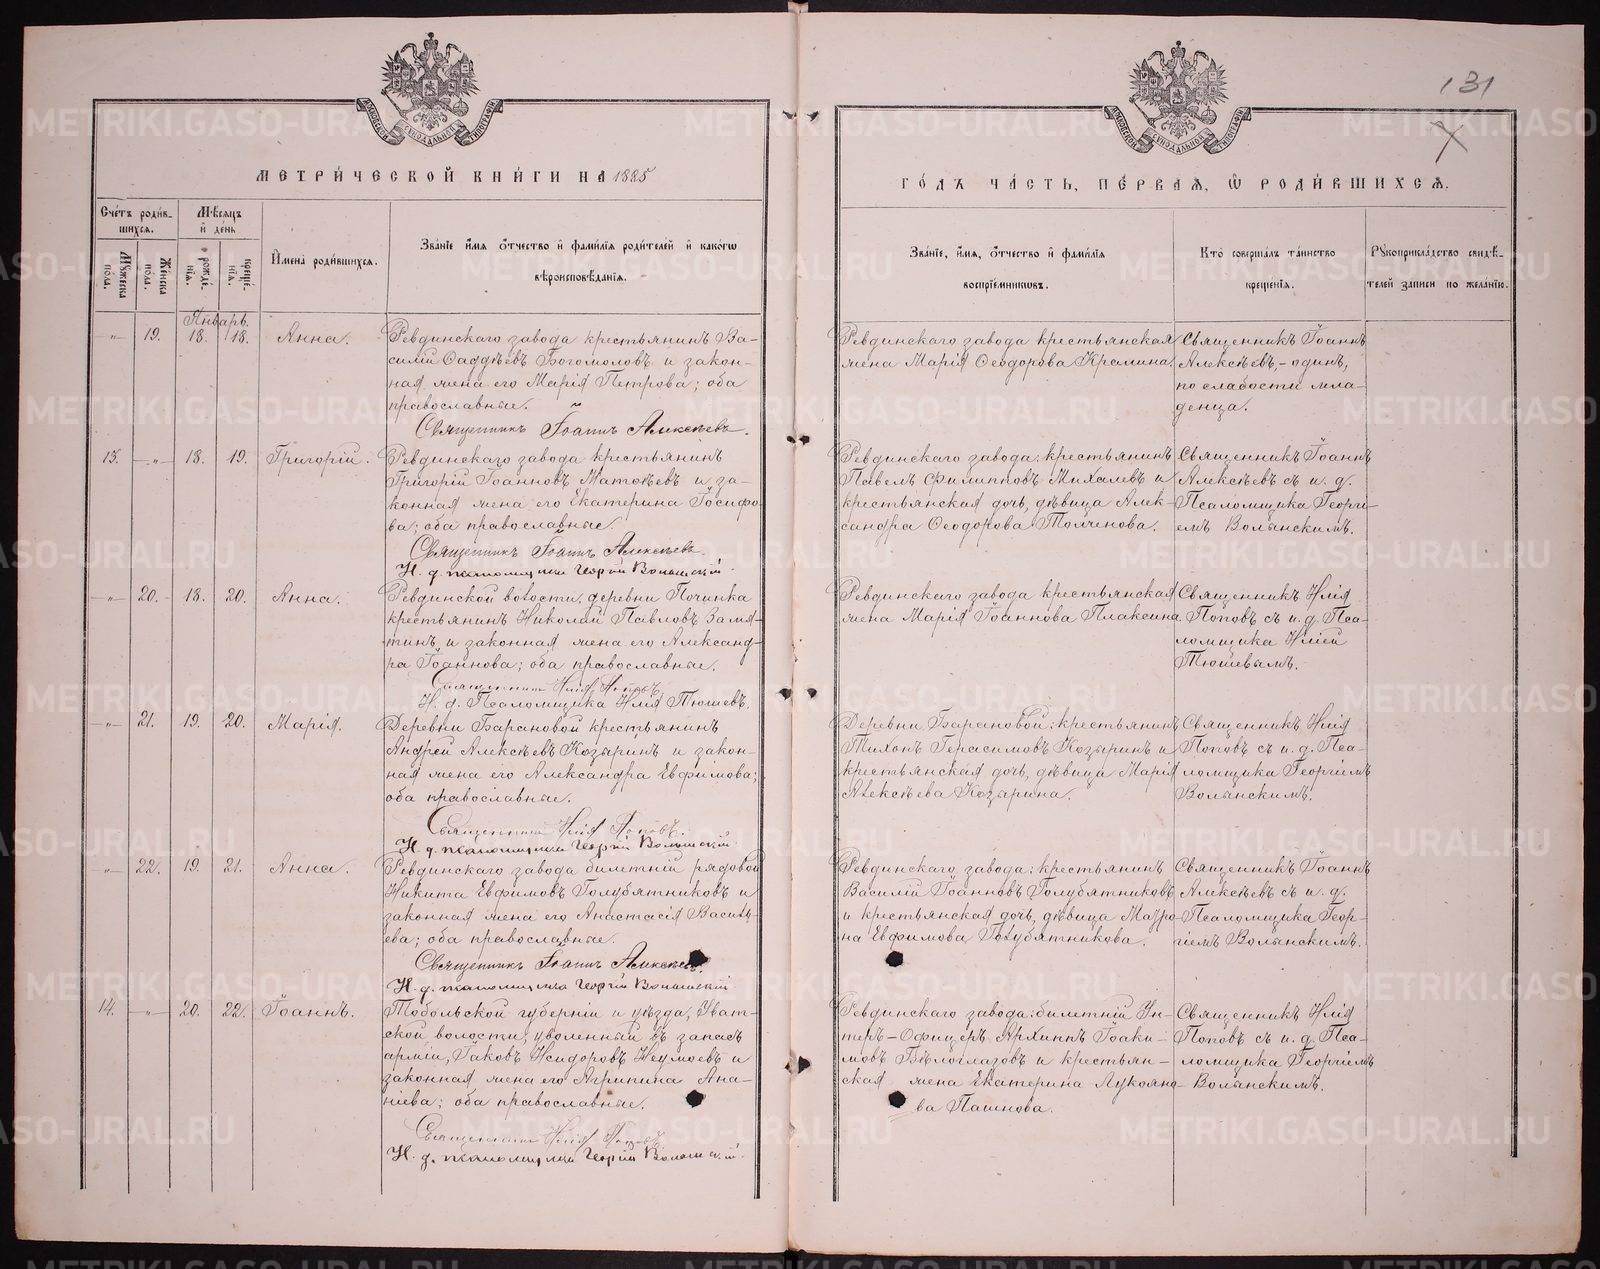 131
МЕТРИ́ЧЕСКОЙ КНИ́ГИ НА 1885
ГО́ДЪ ЧА́СТЬ, ПЕ́РВАѦ, Ѡ РОДИ́ВШИХСѦ.
Сче́тъ роди́в-
шихсѧ.
Мѣ́сѧцъ
и҆ де́нь
И҆мена̀ роди́вшихсѧ.
Зва́нїе и҆́мѧ ѻ҆́тчество и҆ фами́лїѧ роди́телей и҆ како́гѡ
вѣроисповѣ́данїѧ.
Мꙋ́жеска по́ла.
Же́нска по́ла.
рожде́-нїѧ.
креще́-нїѧ.
Зва́нїе, и҆́мѧ, ѻ҆́тчество и҆ фами́лїѧ
воспрїе́мникѡвъ.
Кто̀ соверша́лъ та́инство
креще́нїѧ.
Рꙋкоприкла́дство свидѣ́-
телей за́писи по жела́нїю.
Январь.
-"- 19. 18. 18. Анна.
Ревдинскаго завода крестьянинъ Ва-
силій Фаддѣевъ Богомоловъ и закон-
ная жена его Марія Петрова; оба
православные.
Священникъ Іоаннъ Алексѣевъ.
Ревдинскаго завода крестьянская
жена Марія Ѳеодорова Кралина.
Священникъ Іоаннъ
Алексѣевъ,- одинъ,
по слабости мла-
денца.
13. -"- 18. 19. Григорій.
Ревдинскаго завода крестьянинъ
Григорій Іоанновъ Матвѣевъ и за-
конная жена его Екатерина Іосифо-
ва; оба православные.
Священникъ Іоаннъ Алексѣевъ.
И. д. псаломщика Георгій Волынскій.
Ревдинскаго завода: крестьянинъ
Павелъ Филипповъ Михалевъ и
крестьянская дочь, дѣвица Алек-
сандра Ѳеодорова Толченова.
Священникъ Іоаннъ
Алексѣевъ съ и. д.
Псаломщика Георгі-
емъ Волынскимъ.
-"- 20. 18. 20. Анна.
Ревдинской волости, деревни Починка
крестьянинъ Николай Павловъ Замя-
тинъ и законная жена его Александ-
ра Іоаннова; оба православные.
Священникъ Илія Поповъ.
И. д. Псаломщика Илія Тюшевъ.
Ревдинскаго завода крестьянская
жена Марія Іоаннова Плаксина.
Священникъ Илія
Поповъ съ и. д. Пса-
ломщика Иліей
Тюшевымъ.
-"- 21. 19. 20. Марія.
Деревни Барановой крестьянинъ
Андрей Алексѣевъ Козыринъ и закон-
ная жена его Александра Евфимова;
оба православные.
Священникъ Илія Поповъ.
И. д. псаломщика Георгій Волынскій.
Деревни Барановой: крестьянинъ
Тихонъ Герасимовъ Козыринъ и
крестьянская дочь, дѣвица Марія
Алексѣева Козырина.
Священникъ Илія
Поповъ съ и. д. Пса-
ломщика Георгіемъ
Волынскимъ.
-"- 22. 19. 21. Анна.
Ревдинскаго завода билетный рядовой
Никита Евфимовъ Голубятниковъ и
законная жена его Анастасія Василь-
ева; оба православные.
Священникъ Іоаннъ Алексѣевъ.
И. д. псаломщика Георгій Волынскій.
Ревдинскаго завода: крестьянинъ
Василій Іоанновъ Голубятниковъ
и крестьянская дочь, дѣвица Матро-
на Евфимова Голубятникова.
Священникъ Іоаннъ
Алексѣевъ съ и. д.
Псаломщика Геор-
гіемъ Волынскимъ.
14. -"- 20. 22. Іоаннъ.
Тобольской губерніи и уѣзда, Уват-
ской волости, уволенный въ запасъ
арміи, Іаковъ Исидоровъ Неумоевъ и
законная жена его Агрипина Ана-
ніева; оба православные.
Священникъ Илія Поповъ.
И. д. псаломщика Георгій Волынскій.
Ревдинскаго завода: билетный Ун-
теръ-Офицеръ Архиппъ Іоаки-
мовъ Бѣлоглазовъ и крестьян-
ская жена Екатерина Лукояно-
ва Пашнова.
Священникъ Илія
Поповъ съ и. д. Пса-
ломщика Георгіемъ
Волынскимъ.
METRIKI.GASO-URAL.RU